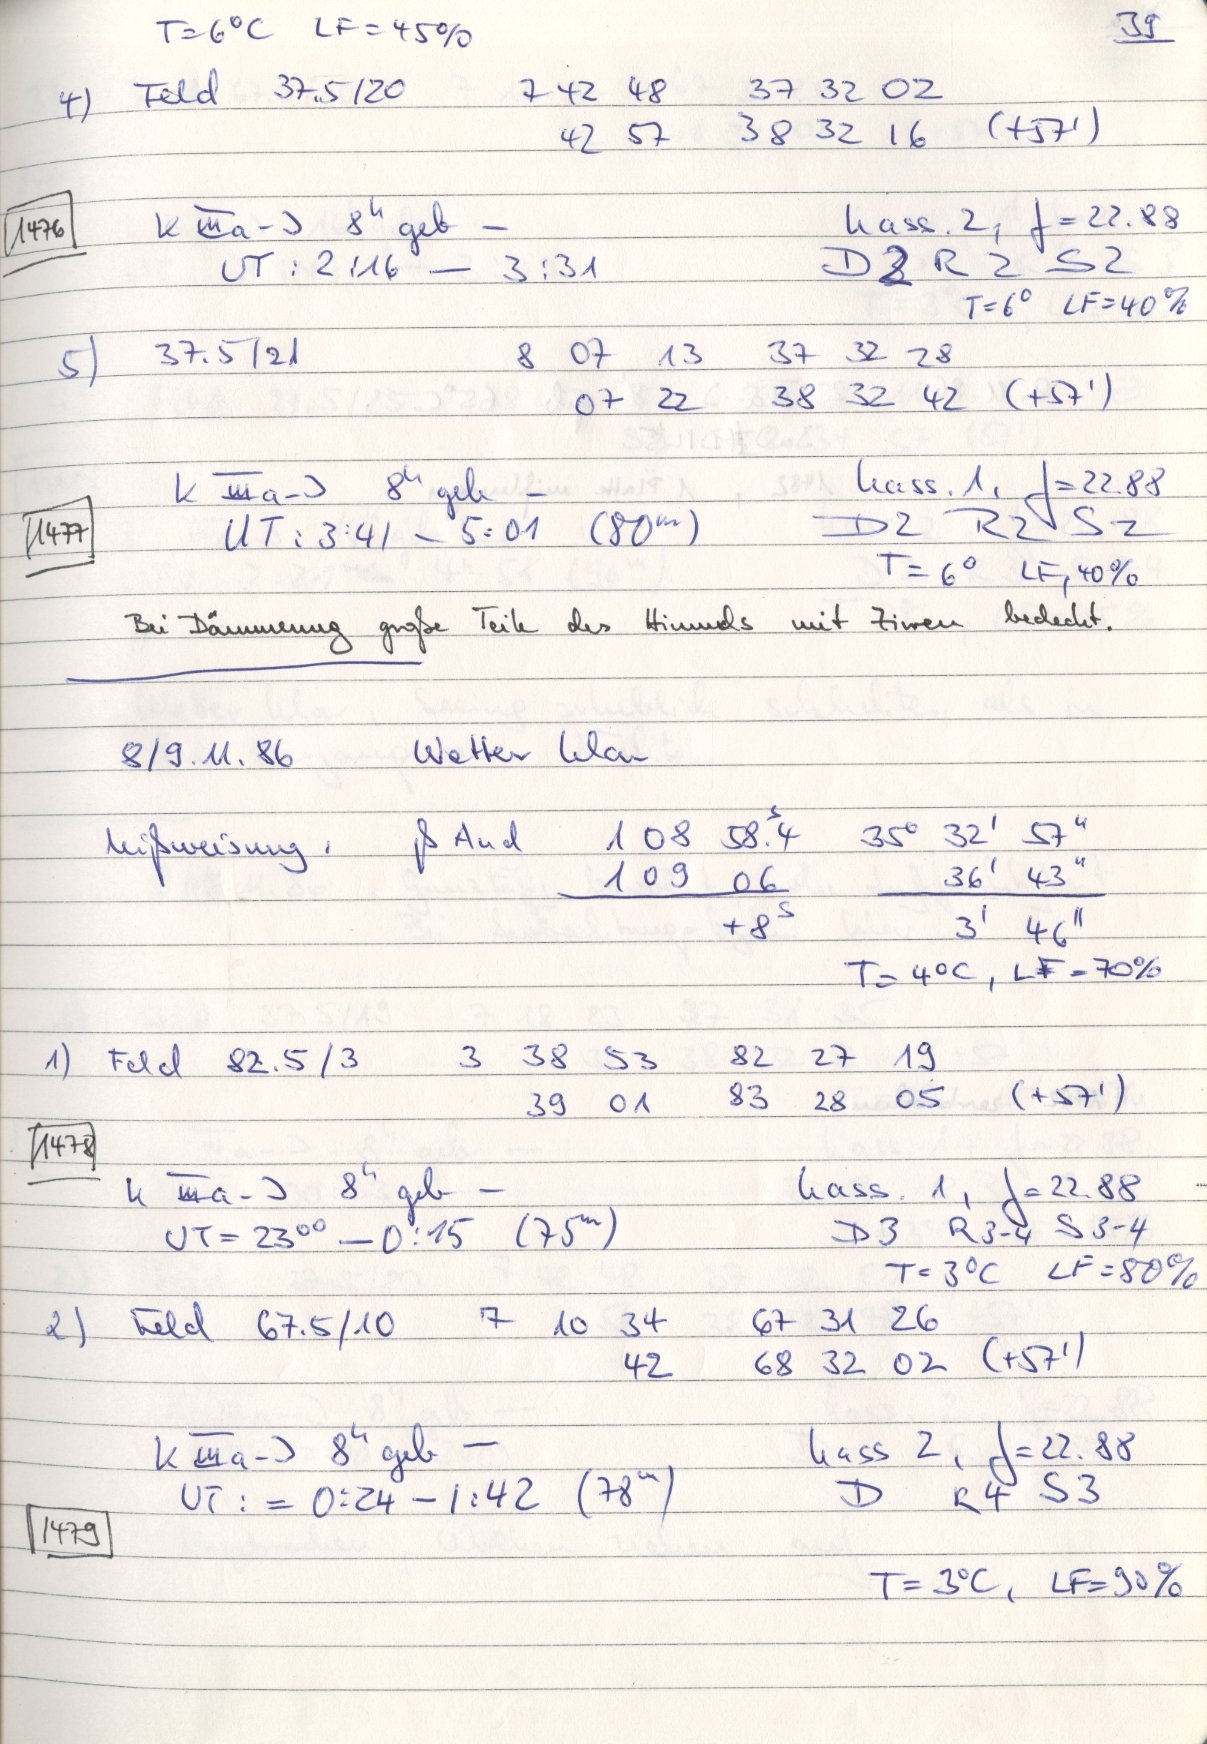 T=6°C LF=45% 39
4) Feld 37.5/20 7 42 48 37 32 02
42 57 38 32 16 (+57')
1476 K IIIa-J 8h geb — Kass. 2, f=22.88
UT: 2:16 — 3:31 D2 R2 S2
T=6° LF=40%
5) 37.5/21 8 07 13 37 32 28
07 22 38 32 42 (+57')
K IIIa-J 8h geb — Kass. 1, f=22.88
1477 UT: 3:41 — 5:01 (80m) D2 R2 S2
T=6° LF, 40%
Bei Dämmerung große Teile des Himmels mit Zirren bedeckt.
8/9.11.86 Wetter klar
Mißweisung: β And 1 08 58.s4 35° 32' 57"
1 09 06 36' 43"
+8s 3' 46"
T=4°C, LF=70%
1) Feld 82.5/3 3 38 53 82 27 19
39 01 83 28 05 (+57')
1478
K IIIa-J 8h geb — Kass. 1, f=22.88
UT=23oo — 0:15 (75m) D3 R3-4 S3-4
T=3°C LF=80%
2) Feld 67.5/10 7 10 34 67 31 26
42 68 32 02 (+57')
K IIIa-J 8h geb — Kass 2, f=22.88
UT: = 0:24 — 1:42 (78m) D R4 S3
1479
T=3°C, LF=90%